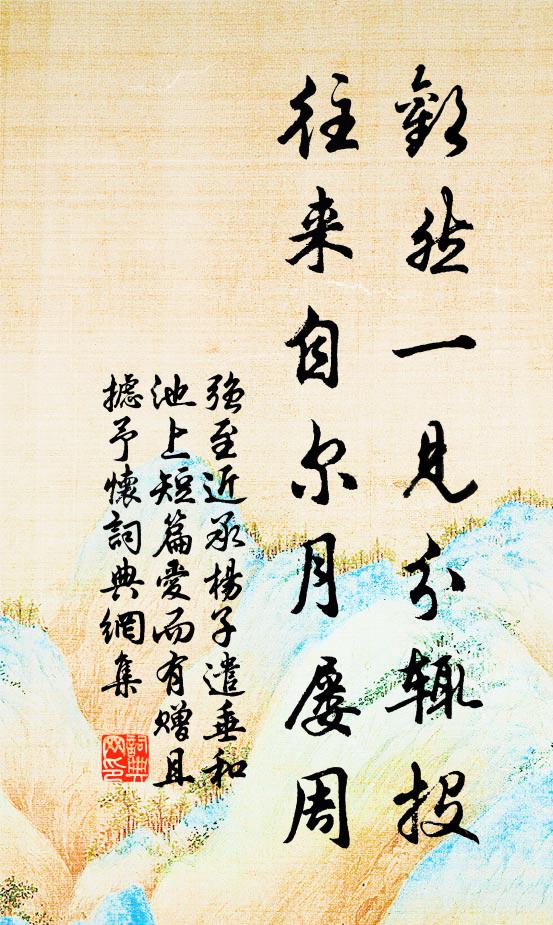 歡然一見分輒投
往来自尔月屢周
强至近承楊子遣垂和
池上短篇愛而有贈且
攄予懷詞典網集
詞典
网印